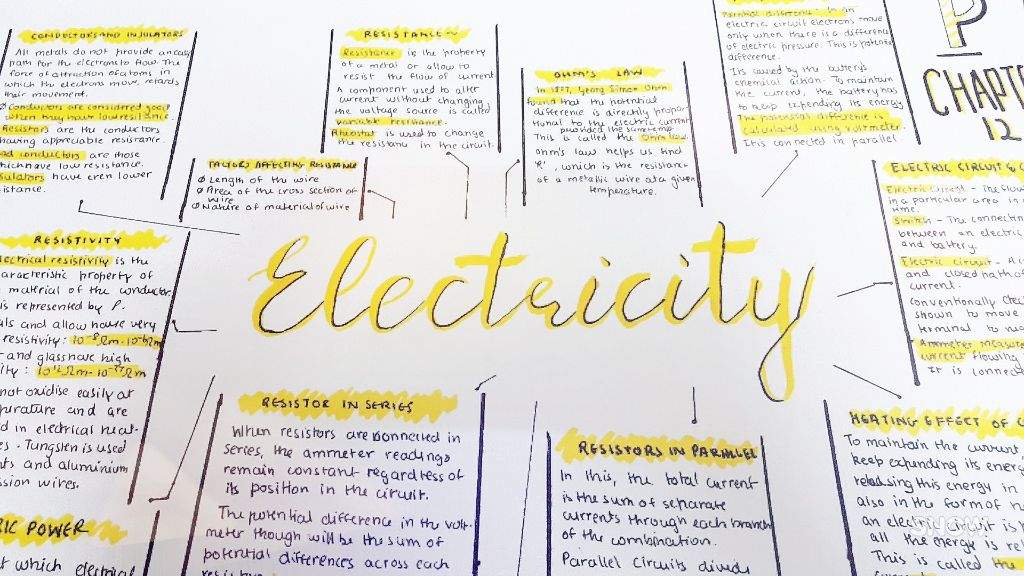 CONDUCTORS AND INSULATORS
All metals do not provide an easy
path for the electrons to flow. The
force of attraction of atoms in
which the electrons move, retards
their movement.
Conductors are considered good
when they have low resistance.
Resistors are the conductors
having appreciable resistance.
conductors are those
which have low resistance.
have even lower
RESISTANCE
Resistance is the property
of a metal or allow to
resist the flow of current
A component used to alter
current without changing
the voltage source is called
variable resistance.
Rheostat is used to change
the resistance in the circuit.
FACTORS AFFECTING RESISTANCE
Length of the wire
Area of the cross section of
wire
Nature of material of wire
OHM'S LAW
In 1827, Georg Simon Ohm
found that the potential
difference is directly propor
tional to the electric current
provided the same temp.
This is called the Ohm law.
Ohm's law helps us find
'R', which is the resistance
of a metallic wire at a given
temperature.
Potential difference - In an
electric circuit electrons move
only when there is a difference
of electric pressure. This is potential
difference.
Its caused by the battery's
chemical action. To maintain
the current, the battery has
to keep expending its energy
The potential difference is
calculated using voltmeter.
It is connected in parallel
P
CHAPT
12
Electricity
ELECTRIC CIRCUIT & C
Electric Current - The flow
in a particular area in
time.
Switch - The connecting
between an electric
and battery.
Electric circuit - A
and closed path of
current.
Conventionally
shown to move
terminal to
Ammeter measure
current flowing
It is connec
RESISTIVITY
electrical resistivity is the
characteristic property of
material of the conductor.
is represented by P.
and allow have very
resistivity: 10⁻⁸Ωm-10⁻⁶Ωm
and glass have high
10¹²Ωm-10⁻¹⁷Ωm
not oxidise easily at
and are
in electrical heat-
Tungsten is used
and aluminium
wires.
RESISTOR IN SERIES
When resistors are connected in
series, the ammeter readings
remain constant regardless of
its position in the circuit.
The potential difference in the volt-
meter though will be the sum of
potential differences across each
RESISTORS IN PARALLEL
In this, the total current
is the sum of separate
currents through each branch
of the combination.
Parallel Circuits divide
HEATING EFFECT OF C
To maintain the current
keep expending its energ
releasing this energy in
also in the form of h
an electric circuit is p
all the energy is rel
This is called the
RIC POWER
which electrical